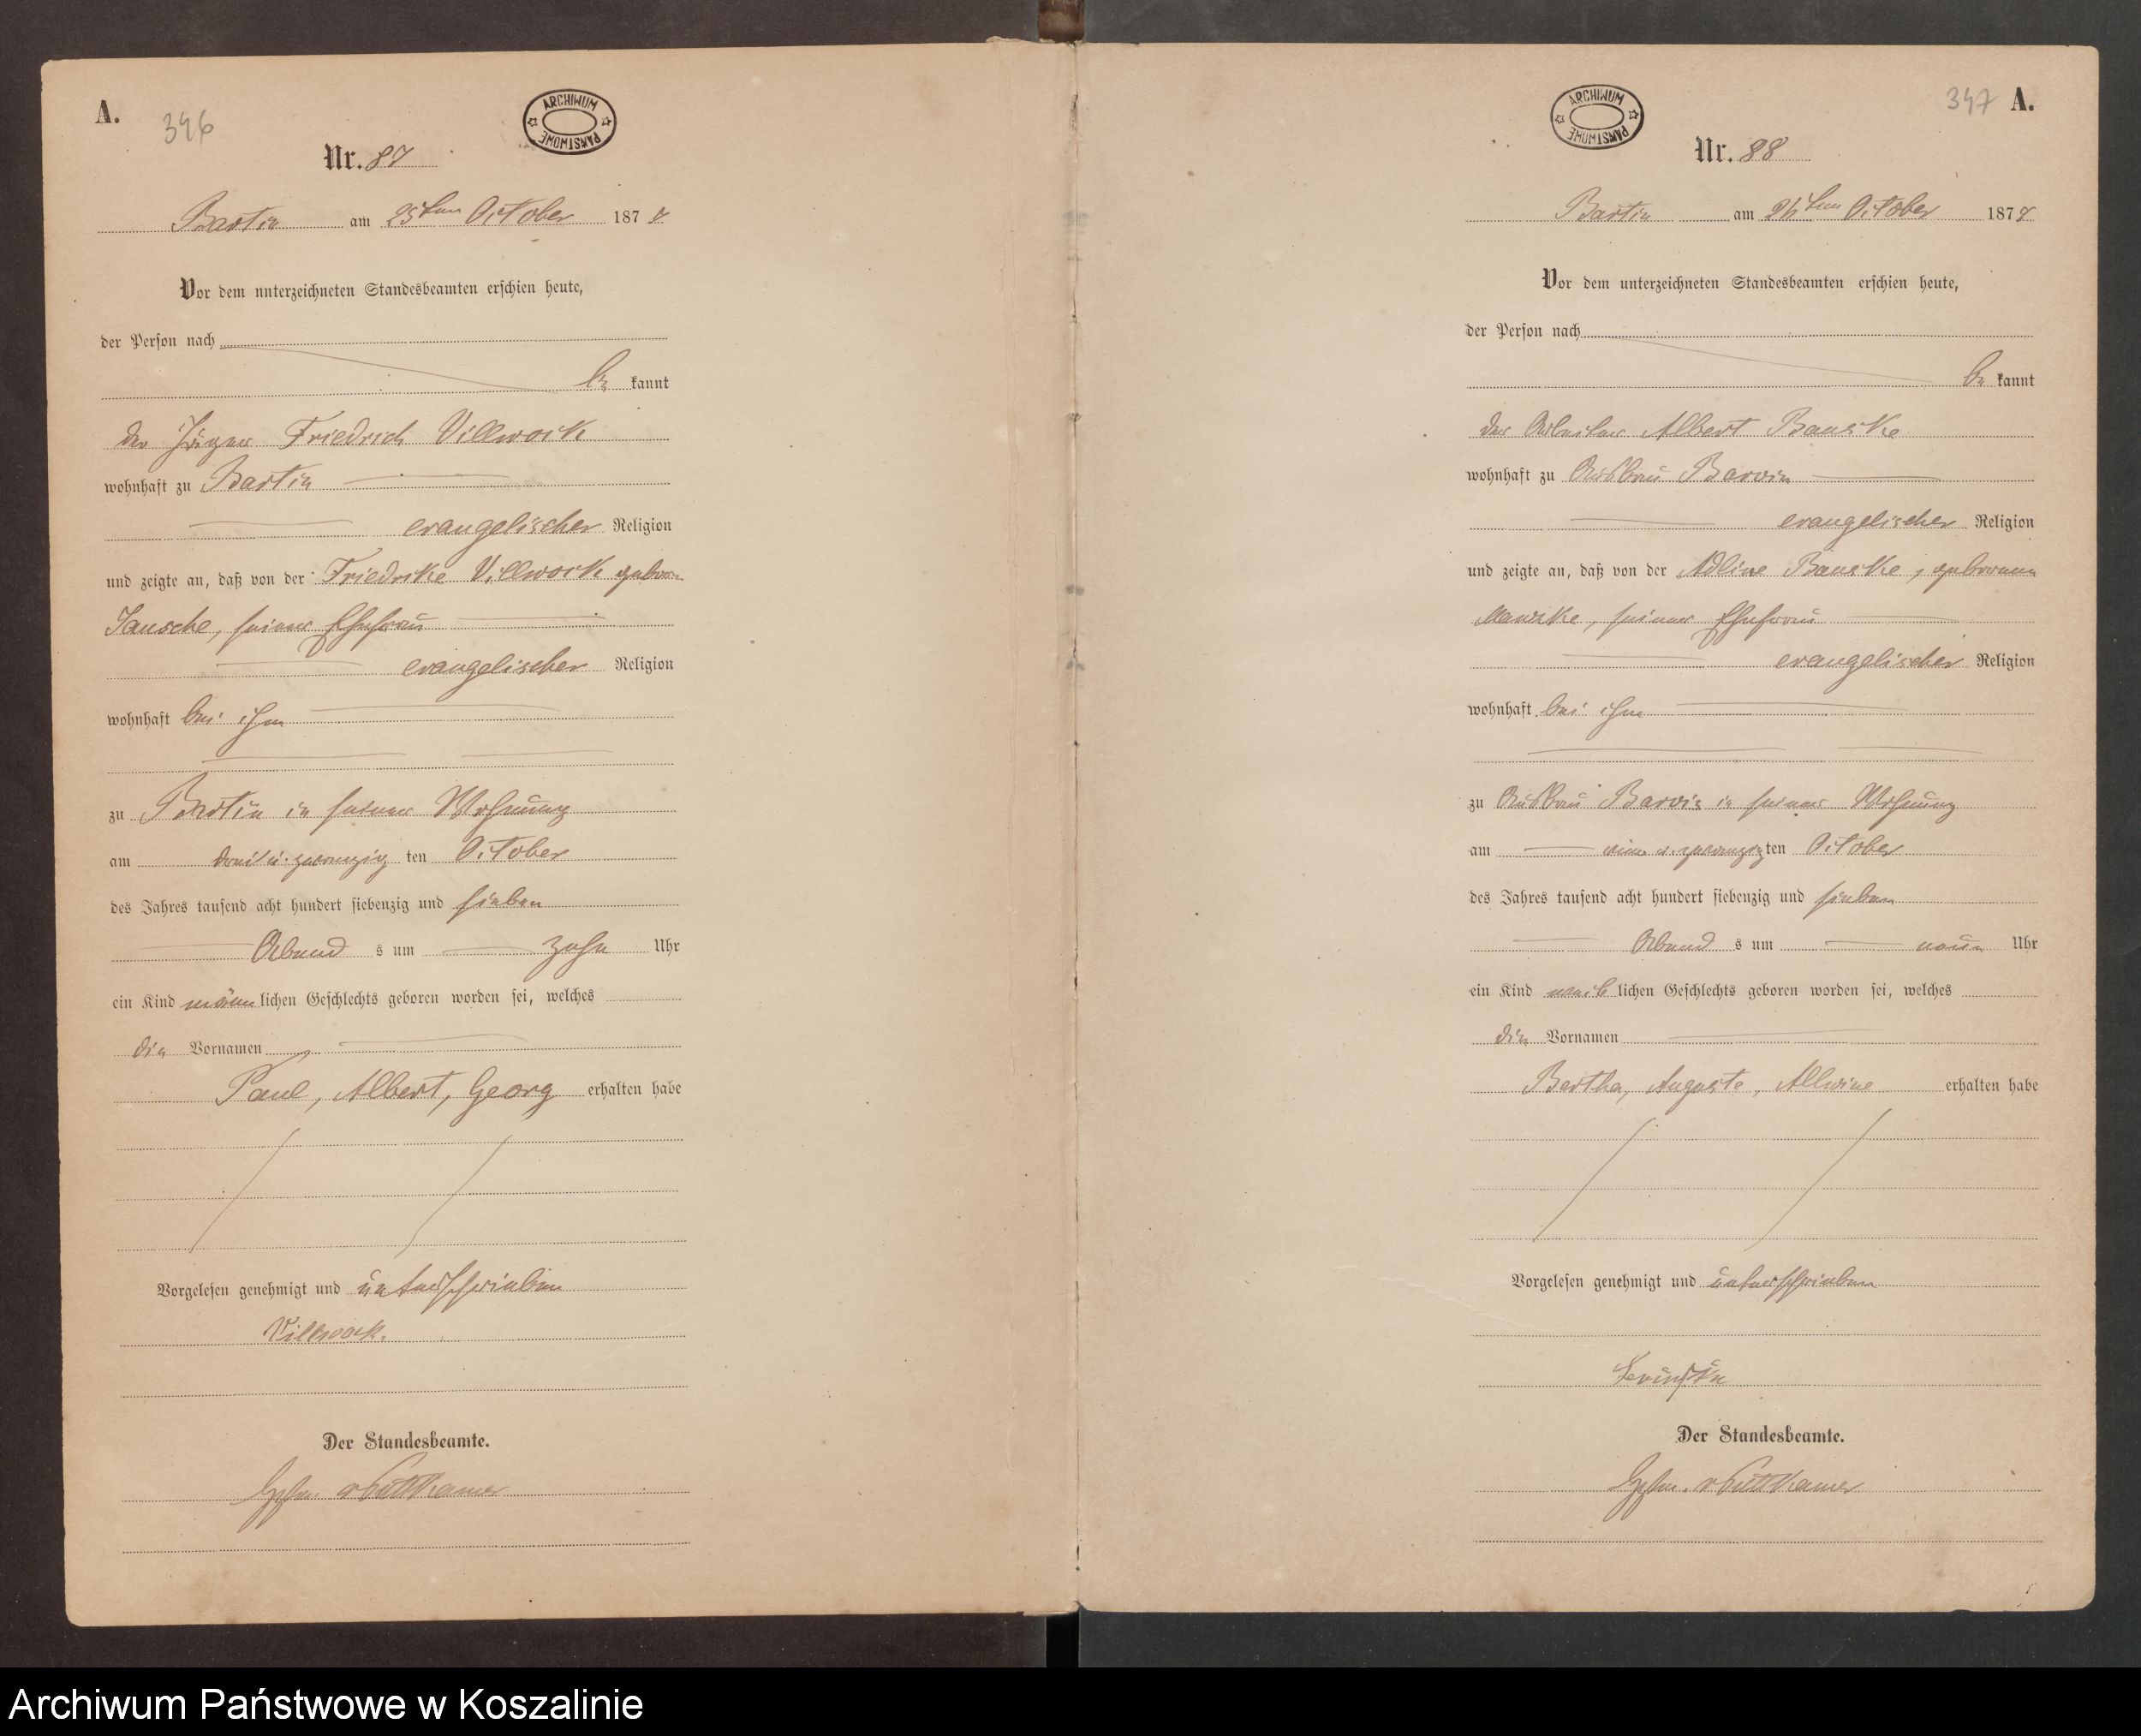 A.
346
ARCHIWUM PAŃSTWOWE
Nr. 87
Bartin am 25ten October 1877
Vor dem unterzeichneten Standesbeamten erschien heute,
der Person nach
be kannt
der Jäger Friedrich Villwock
wohnhaft zu Bartin
evangelischer Religion
und zeigte an, daß von der Friedrike Villwock geboren
Jansche, seiner Ehefrau
evangelischer Religion
wohnhaft bei ihm
zu Bartin in seiner Wohnung
am drei u. zwanzig ten October
des Jahres tausend acht hundert siebenzig und sieben
Abend s um zehn Uhr
ein Kind männ lichen Geschlechts geboren worden sei, welches
die Vornamen
Paul, Albert, Georg erhalten habe
Vorgelesen genehmigt und unterschrieben
Villwock.
Der Standesbeamte.
v Puttkamer
347 A.
ARCHIWUM PAŃSTWOWE
Nr. 88
Bartin am ten October 1877
Vor dem unterzeichneten Standesbeamten erschien heute,
der Person nach
be kannt
der Arbeiter Albert Bauske
wohnhaft zu Ausbau Barvin
evangelischer Religion
und zeigte an, daß von der Adline Bauske, geborenen
Manzke, seiner Ehefrau
evangelischer Religion
wohnhaft bei ihm
zu Ausbau Barvin in seiner Wohnung
am ein u. zwanzig ten October
des Jahres tausend acht hundert siebenzig und sieben
Abend s um neun Uhr
ein Kind weib lichen Geschlechts geboren worden sei, welches
die Vornamen
Bertha, Auguste, Allwine erhalten habe
Vorgelesen genehmigt und unterschrieben
Der Standesbeamte.
v Puttkamer
Archiwum Państwowe w Koszalinie